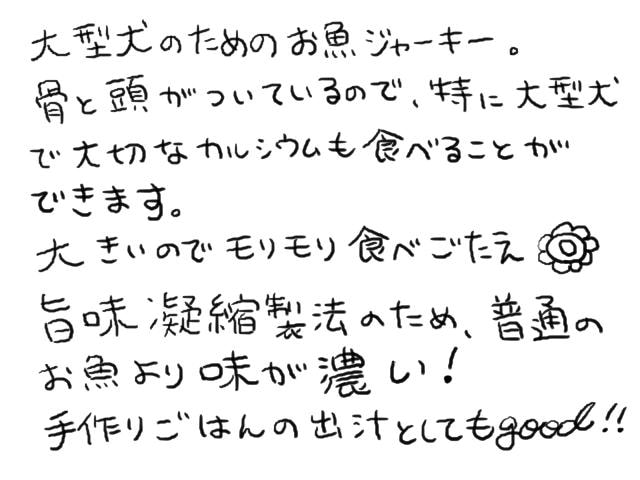 大型犬のためのお魚ジャーキー。
骨と頭がついているので、特に大型犬
で大切なカルシウムも食べることが
できます。
大きいのでモリモリ食べごたえ
旨味凝縮製法のため、普通の
お魚より味が濃い!
手作りごはんの出汁としてもgood!!